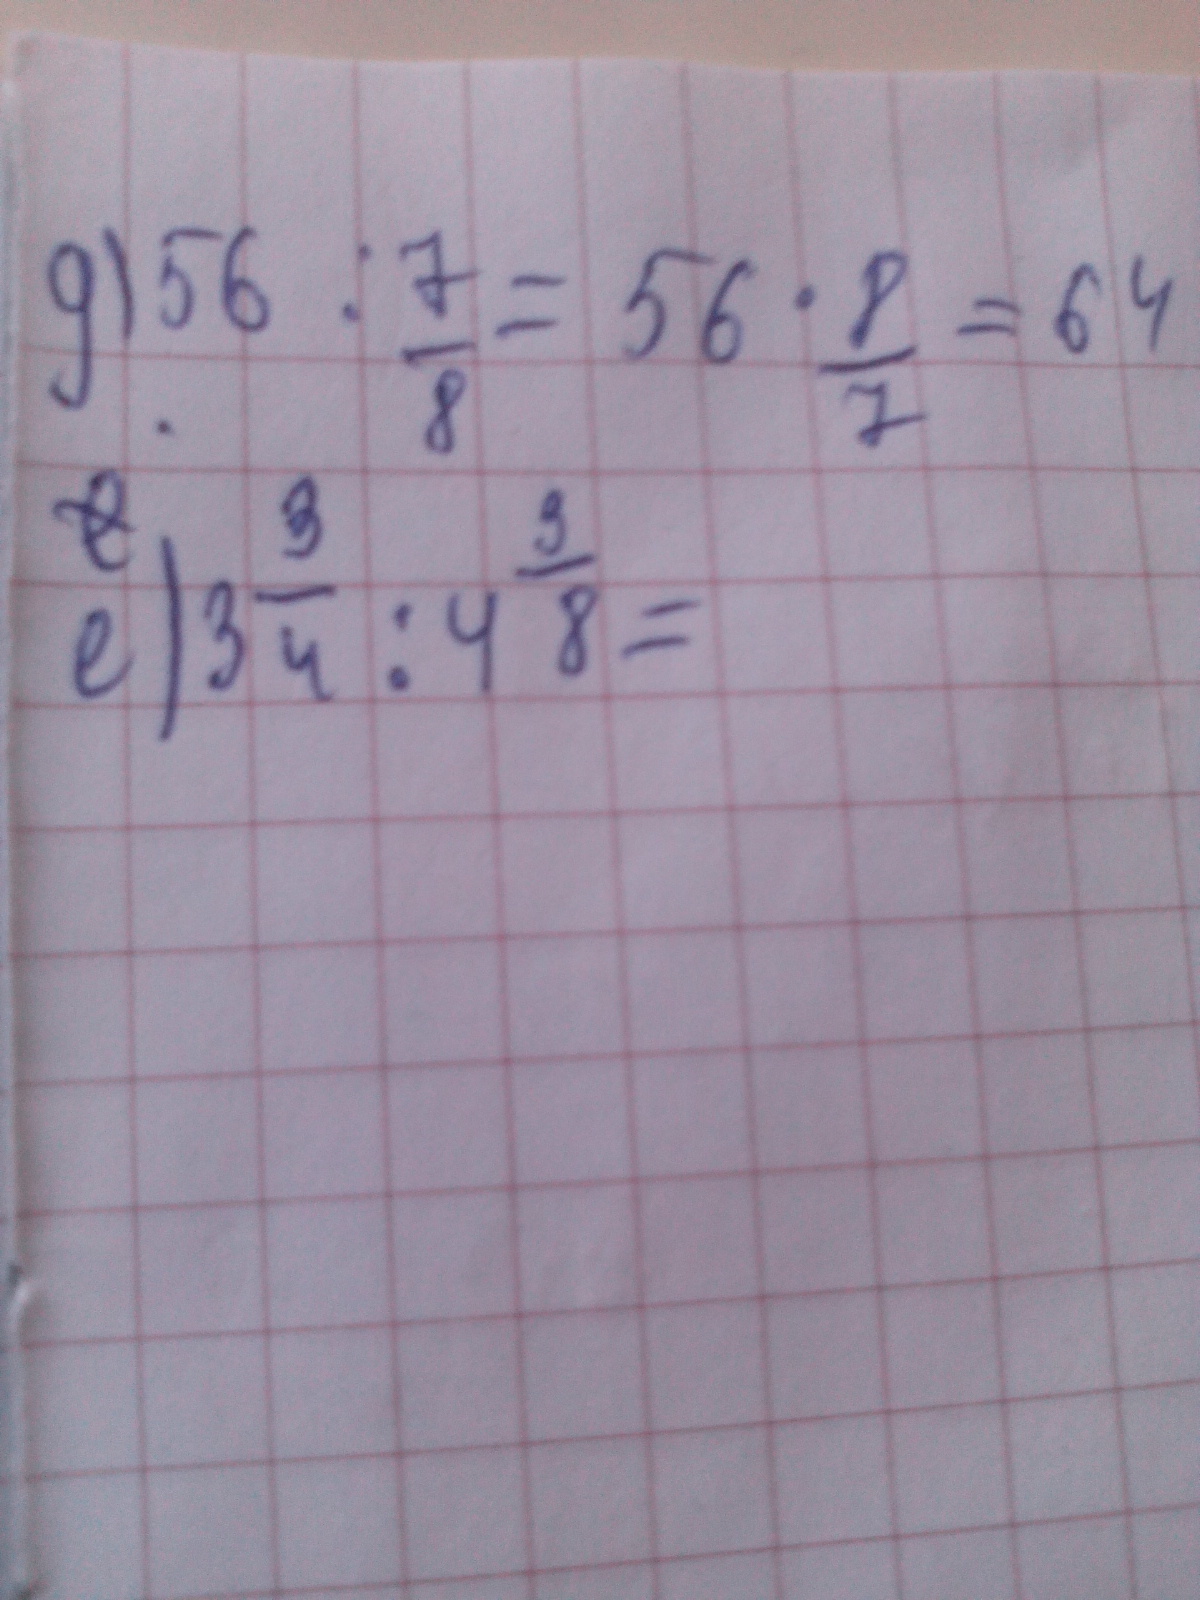 д) 56 : 7/8 = 56 · 8/7 = 64
е) 3 3/4 : 4 3/8 =